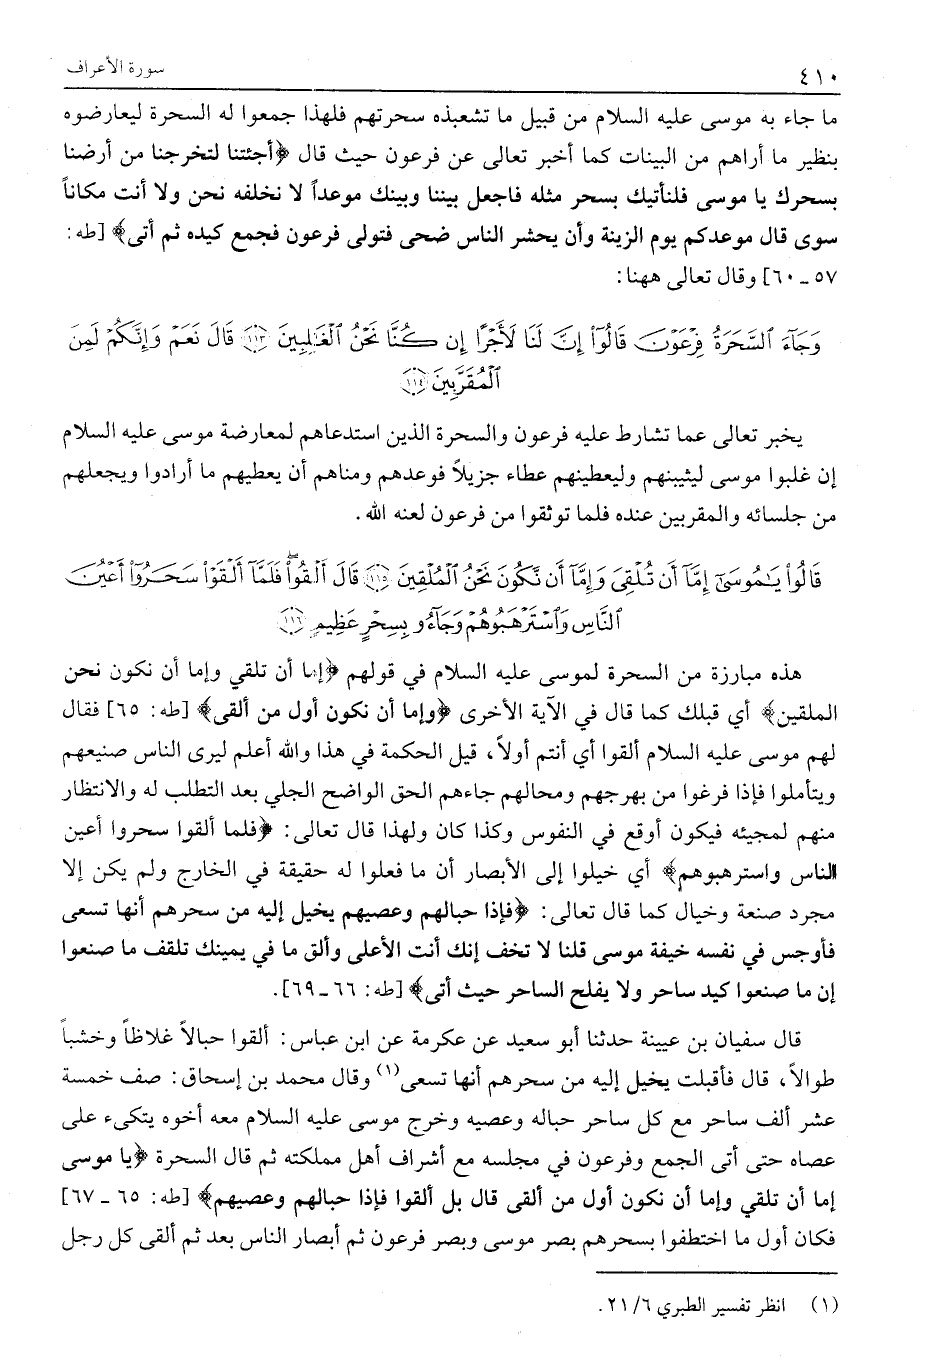 ٤١٠
سورة الأعراف
ما جاء به موسى عليه السلام من قبيل ما تشعبذه سحرتهم فلهذا جمعوا له السحرة ليعارضوه
بنظير ما أراهم من البينات كما أخبر تعالى عن فرعون حيث قال ﴿أجئتنا لتخرجنا من أرضنا
بسحرك يا موسى فلنأتيك بسحر مثله فاجعل بيننا وبينك موعداً لا نخلفه نحن ولا أنت مكاناً
سوى قال موعدكم يوم الزينة وأن يحشر الناس ضحى فتولى فرعون فجمع كيده ثم أتى﴾ [طه:
٥٧ ـ ٦٠] وقال تعالى ههنا:
وَجَآءَ ٱلسَّحَرَةُ فِرْعَوْنَ قَالُوٓا۟ إِنَّ لَنَا لَأَجْرًا إِن كُنَّا نَحْنُ ٱلْغَـٰلِبِينَ ۝١١٣ قَالَ نَعَمْ وَإِنَّكُمْ لَمِنَ
ٱلْمُقَرَّبِينَ ۝١١٤
يخبر تعالى عما تشارط عليه فرعون والسحرة الذين استدعاهم لمعارضة موسى عليه السلام
إن غلبوا موسى ليثيبنهم وليعطينهم عطاء جزيلاً فوعدهم ومناهم أن يعطيهم ما أرادوا ويجعلهم
من جلسائه والمقربين عنده فلما توثقوا من فرعون لعنه الله.
قَالُوا۟ يَـٰمُوسَىٰٓ إِمَّآ أَن تُلْقِىَ وَإِمَّآ أَن نَّكُونَ نَحْنُ ٱلْمُلْقِينَ ۝١١٥ قَالَ أَلْقُوا۟ۖ فَلَمَّآ أَلْقَوْا۟ سَحَرُوٓا۟ أَعْيُنَ
ٱلنَّاسِ وَٱسْتَرْهَبُوهُمْ وَجَآءُو بِسِحْرٍ عَظِيمٍ ۝١١٦
هذه مبارزة من السحرة لموسى عليه السلام في قولهم ﴿إما أن تلقي وإما أن نكون نحن
الملقين﴾ أي قبلك كما قال في الآية الأخرى ﴿وإما أن نكون أول من ألقى﴾ [طه: ٦٥] فقال
لهم موسى عليه السلام ألقوا أي أنتم أولاً، قيل الحكمة في هذا والله أعلم ليرى الناس صنيعهم
ويتأملوا فإذا فرغوا من بهرجهم ومحالهم جاءهم الحق الواضح الجلي بعد التطلب له والانتظار
منهم لمجيئه فيكون أوقع في النفوس وكذا كان ولهذا قال تعالى: ﴿فلما ألقوا سحروا أعين
الناس واسترهبوهم﴾ أي خيلوا إلى الأبصار أن ما فعلوا له حقيقة في الخارج ولم يكن إلا
مجرد صنعة وخيال كما قال تعالى: ﴿فإذا حبالهم وعصيهم يخيل إليه من سحرهم أنها تسعى
فأوجس في نفسه خيفة موسى قلنا لا تخف إنك أنت الأعلى وألق ما في يمينك تلقف ما صنعوا
إن ما صنعوا كيد ساحر ولا يفلح الساحر حيث أتى﴾ [طه: ٦٦ ـ ٦٩].
قال سفيان بن عيينة حدثنا أبو سعيد عن عكرمة عن ابن عباس: ألقوا حبالاً غلاظاً وخشباً
طوالاً، قال فأقبلت يخيل إليه من سحرهم أنها تسعى(١) وقال محمد بن إسحاق: صف خمسة
عشر ألف ساحر مع كل ساحر حباله وعصيه وخرج موسى عليه السلام معه أخوه يتكىء على
عصاه حتى أتى الجمع وفرعون في مجلسه مع أشراف أهل مملكته ثم قال السحرة ﴿يا موسى
إما أن تلقي وإما أن نكون أول من ألقى قال بل ألقوا فإذا حبالهم وعصيهم﴾ [طه: ٦٥ ـ ٦٧]
فكان أول ما اختطفوا بسحرهم بصر موسى وبصر فرعون ثم أبصار الناس بعد ثم ألقى كل رجل
(١) انظر تفسير الطبري ٦/ ٢١.